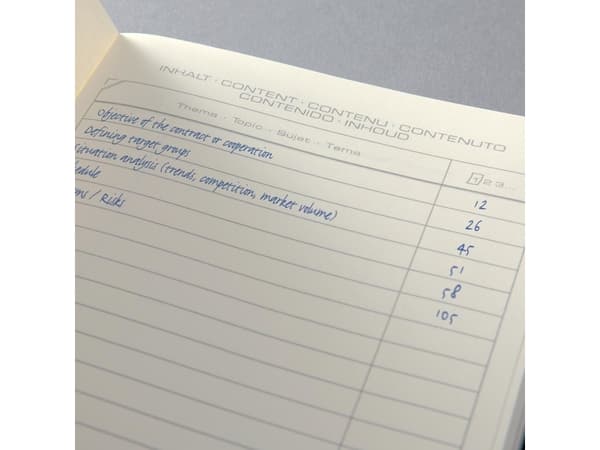 INHALT · CONTENT · CONTENU · CONTENUTO
CONTENIDO · INHOUD
Thema · Topic · Sujet · Tema 1 2 3...
Objective of the contract or cooperation 12
Defining target groups 26
ituation analysis (trends, competition, market volume) 45
edule 51
/ Risks 58
105